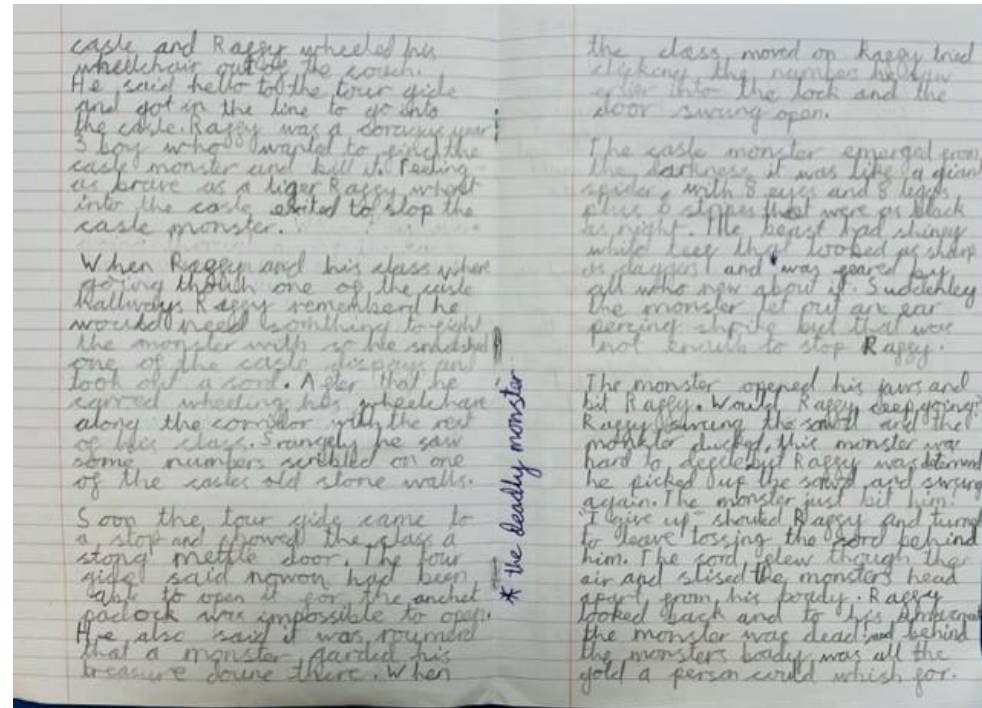 casle and Raffy wheeled his
wheelchair out of the couch.
He said hello to the tour gide
and got in the line to go into
the casle. Raffy was a year
3 boy who wanted to find the
casle monster and kill it. Feeling
as brave as a tiger Raffy whent
into the casle exited to stop the
casle monster.
When Raffy and his class where
going though one of the casle
hallways Raffy rememberd he
would need somthing to fight
the monster with so he smashed
one of the casle dispays and
took out a sord. After that he
carred wheeling his wheelchair
along the corridor with the rest
of his class. Srangely he saw
some numbers scribled on one
of the casles old stone walls.
Soon the tour gide came to
a stop and showed the class a
stong mettle door. The tour
gide said nowon had been
able to open it for the anchet
padlock was impossible to open.
He also said it was roumerd
that a monster garded his
treasure doune there. When
* the deadly monster
the class moved on Raffy tried
clicking the numbers he saw
erlier into the lock and the
door swung open.
The casle monster emerged from
the darkness it was like a giant
spider, with 8 eyes and 8 legs
plus 6 stripes that were as black
as night. The beast had shiney
white teef that looked as sharp
as daggers and was feared by
all who new about it. Suddenley
the monster let out an ear
percing shrike but that was
not enough to stop Raffy.
The monster opened his jaws and
bit Raffy. Would Raffy ceep going?
Raffy swung the sword and the
monster ducked, this monster was
hard to but Raffy was
he picked up the sword and swung
again. The monster just bit him.
"I give up" shouted Raffy and turned
to leave tossing the sord behind
him. The sord flew through the
air and slised the monsters head
apart from his boady. Raffy
looked back and to his
the monster was dead and behind
the monsters boady was all the
gold a person could whish for.